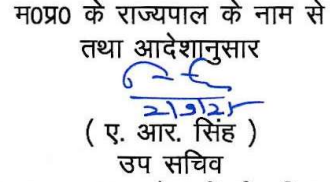 म0प्र0 के राज्यपाल के नाम से
तथा आदेशानुसार
( ए. आर. सिंह )
उप सचिव